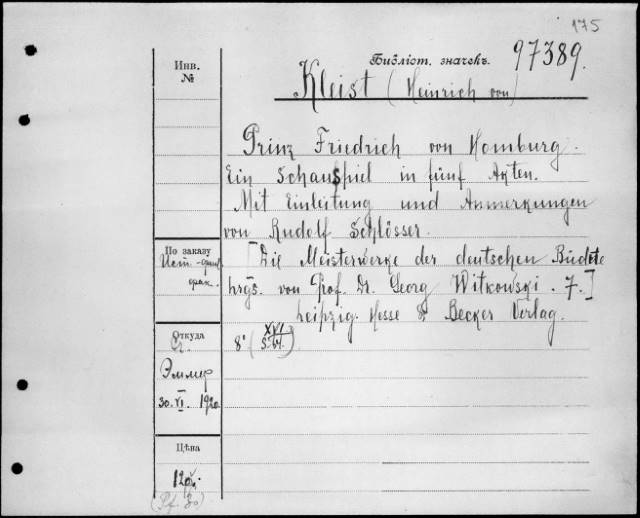 175
Библіот. значекъ. 97389.
Kleist (Heinrich von)
Инв.
№
Prinz Friedrich von Homburg.
Ein Schauspiel in fünf Akten.
Mit Einleitung und Anmerkungen
von Rudolf Schlösser.
По заказу
Ист.-филол.
[Die Meisterwerke der deutschen Bühne
hrgs. von Prof. Dr. Georg Witkowski. 7.]
Leipzig. Hesse & Becker Verlag.
Откуда
8° (XVI
Эммер
30. VI. 1920
Цѣна